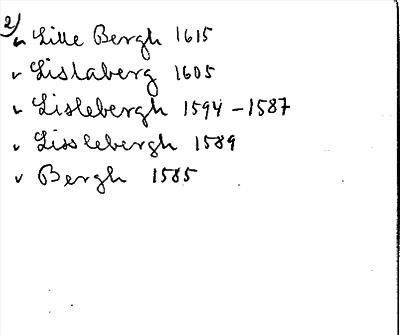 2)
v Lille Bergh 1615
v Lislaberg 1605
v Lislebergh 1594 – 1587
v Lisslebergh 1589
v Bergh 1585